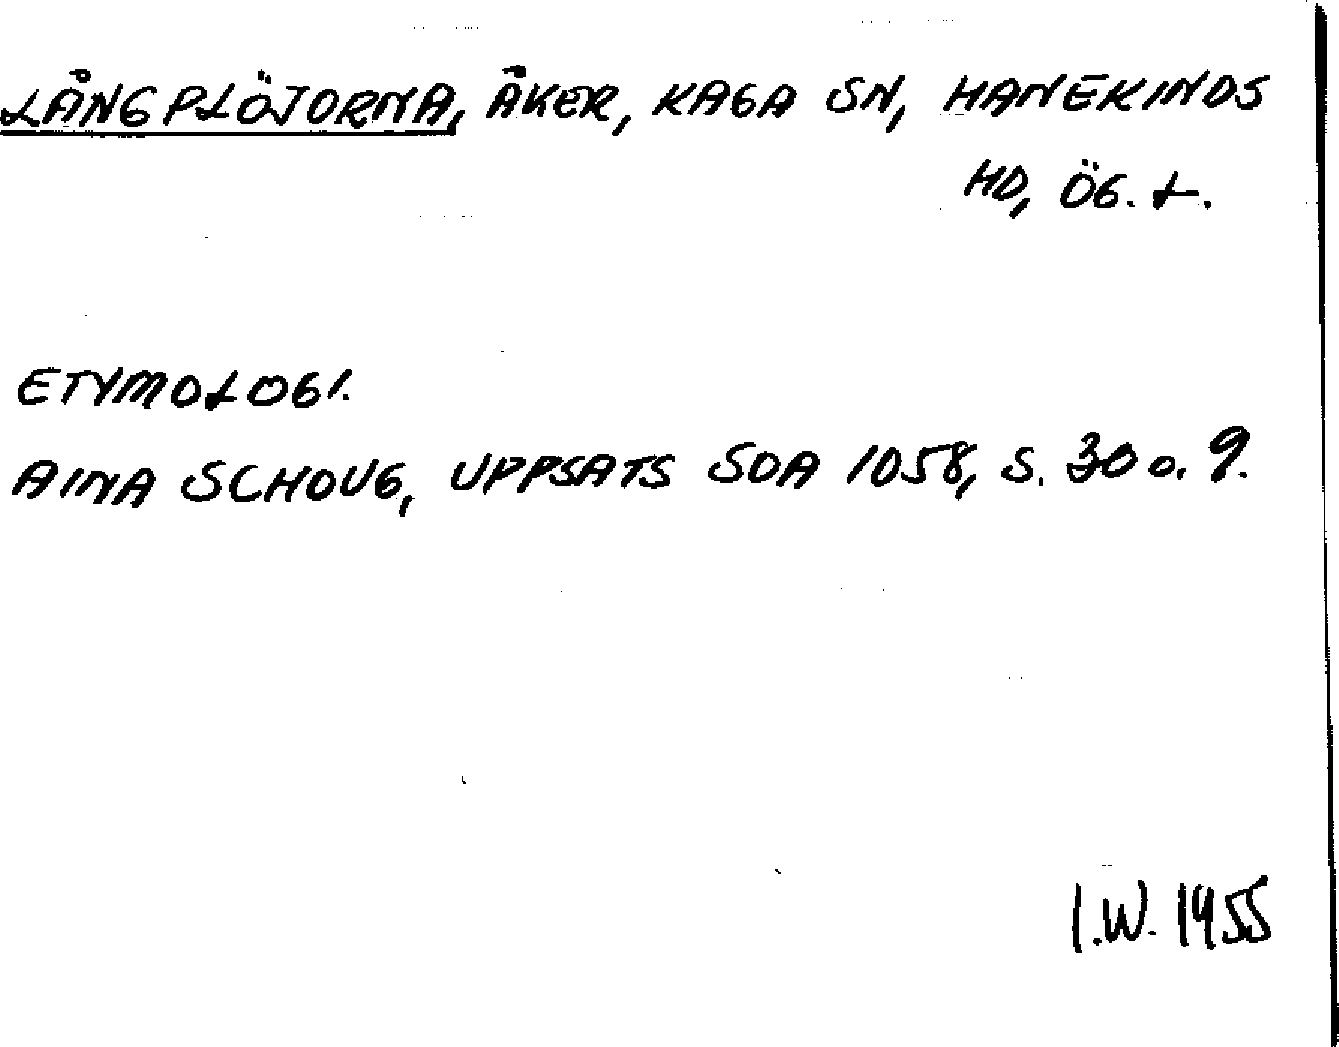 LÅNGPLÖJORNA, ÅKER, KAGA SN, HANEKINDS
HD, ÖG. L.
ETYMOLOGI.
AINA SCHOUG, UPPSATS SOA 1058, S. 30 o. 9.
I.W. 1955